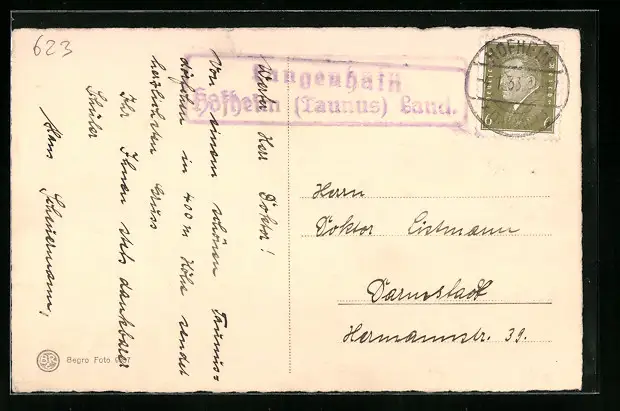 623
Langenhain
Hofheim (Taunus) Land.
HOFHEIM
6 6
Werter Herr Doktor!
Von einem schönen Taunus=
dörfchen in 400 m Höhe sendet
herzlichsten Gruss
Ihr Ihnen stets dankbarer
Schüler
Hans Scheuermann,
Herrn
Doktor Listmann
Darmstadt
Hermannstr. 39.
Begro Foto